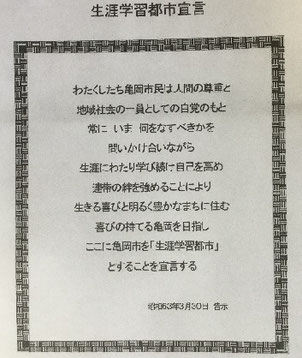 生涯学習都市宣言
わたくしたち亀岡市民は人間の尊重と
地域社会の一員としての自覚のもと
常に いま 何をなすべきかを
問いかけ合いながら
生涯にわたり学び続け自己を高め
連帯の絆を強めることにより
生きる喜びと明るく豊かなまちに住む
喜びの持てる亀岡を目指し
ここに亀岡市を「生涯学習都市」
とすることを宣言する
昭和63年3月30日 告示